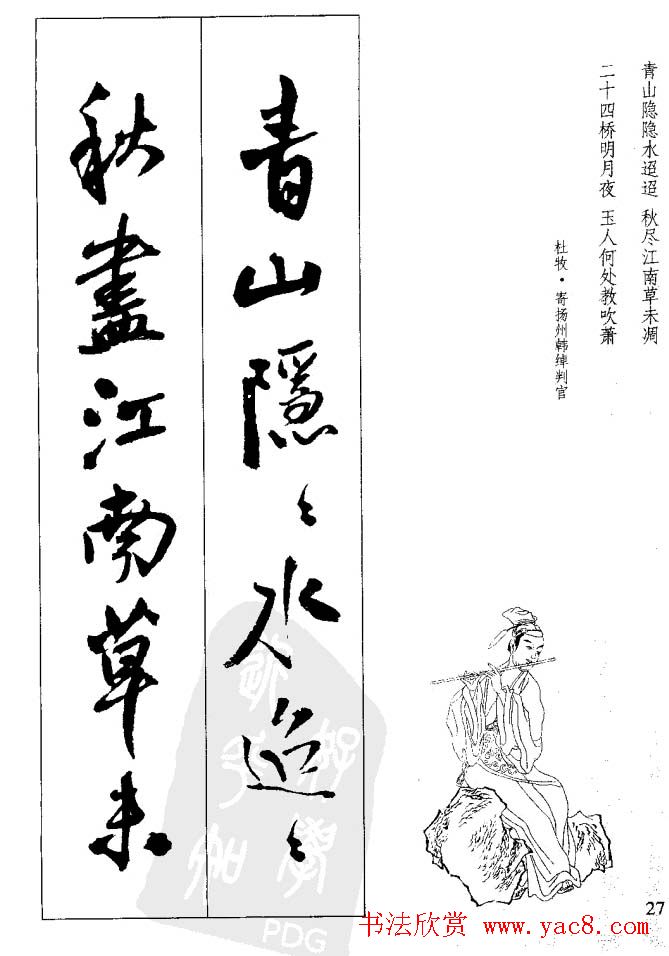 青山隐隐水迢迢 秋尽江南草未凋
二十四桥明月夜 玉人何处教吹萧
杜牧·寄扬州韩绰判官
青山隱〻水迢〻
秋盡江南草未
PDG
27
书法欣赏 www.yac8.com